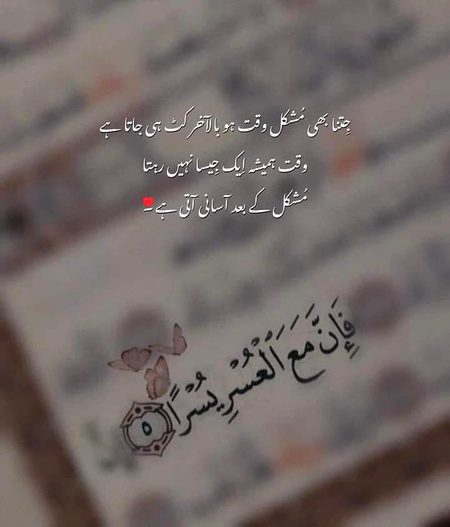 جِتنا بھی مُشکل وقت ہو بالآخر کٹ ہی جاتا ہے
وقت ہمیشہ ایک جیسا نہیں رہتا
مُشکل کے بعد آسانی آتی ہے۔
فَإِنَّ مَعَ ٱلْعُسْرِ يُسْرًا ٥